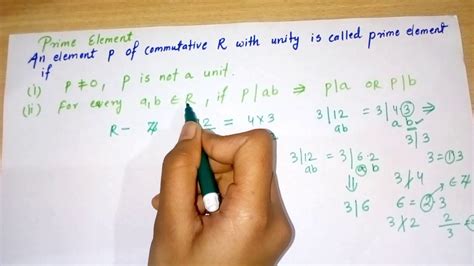 Prime Element
An element p of commutative R with unity is called prime element
if
(i) p ≠ 0, p is not a unit.
(ii) For every a, b ∈ R, if p | ab ⇒ p | a OR p | b
R – Z 12 = 4 × 3
3 | 12 = 3 | 4 3
ab a b
3 | 12 = 3 | 6 · 2
ab a b
3 = 1 3
⇓ 3 ∤ 4
3 | 6 6 = 2 · 3
3 ∤ 2 2/3 ∈ Z